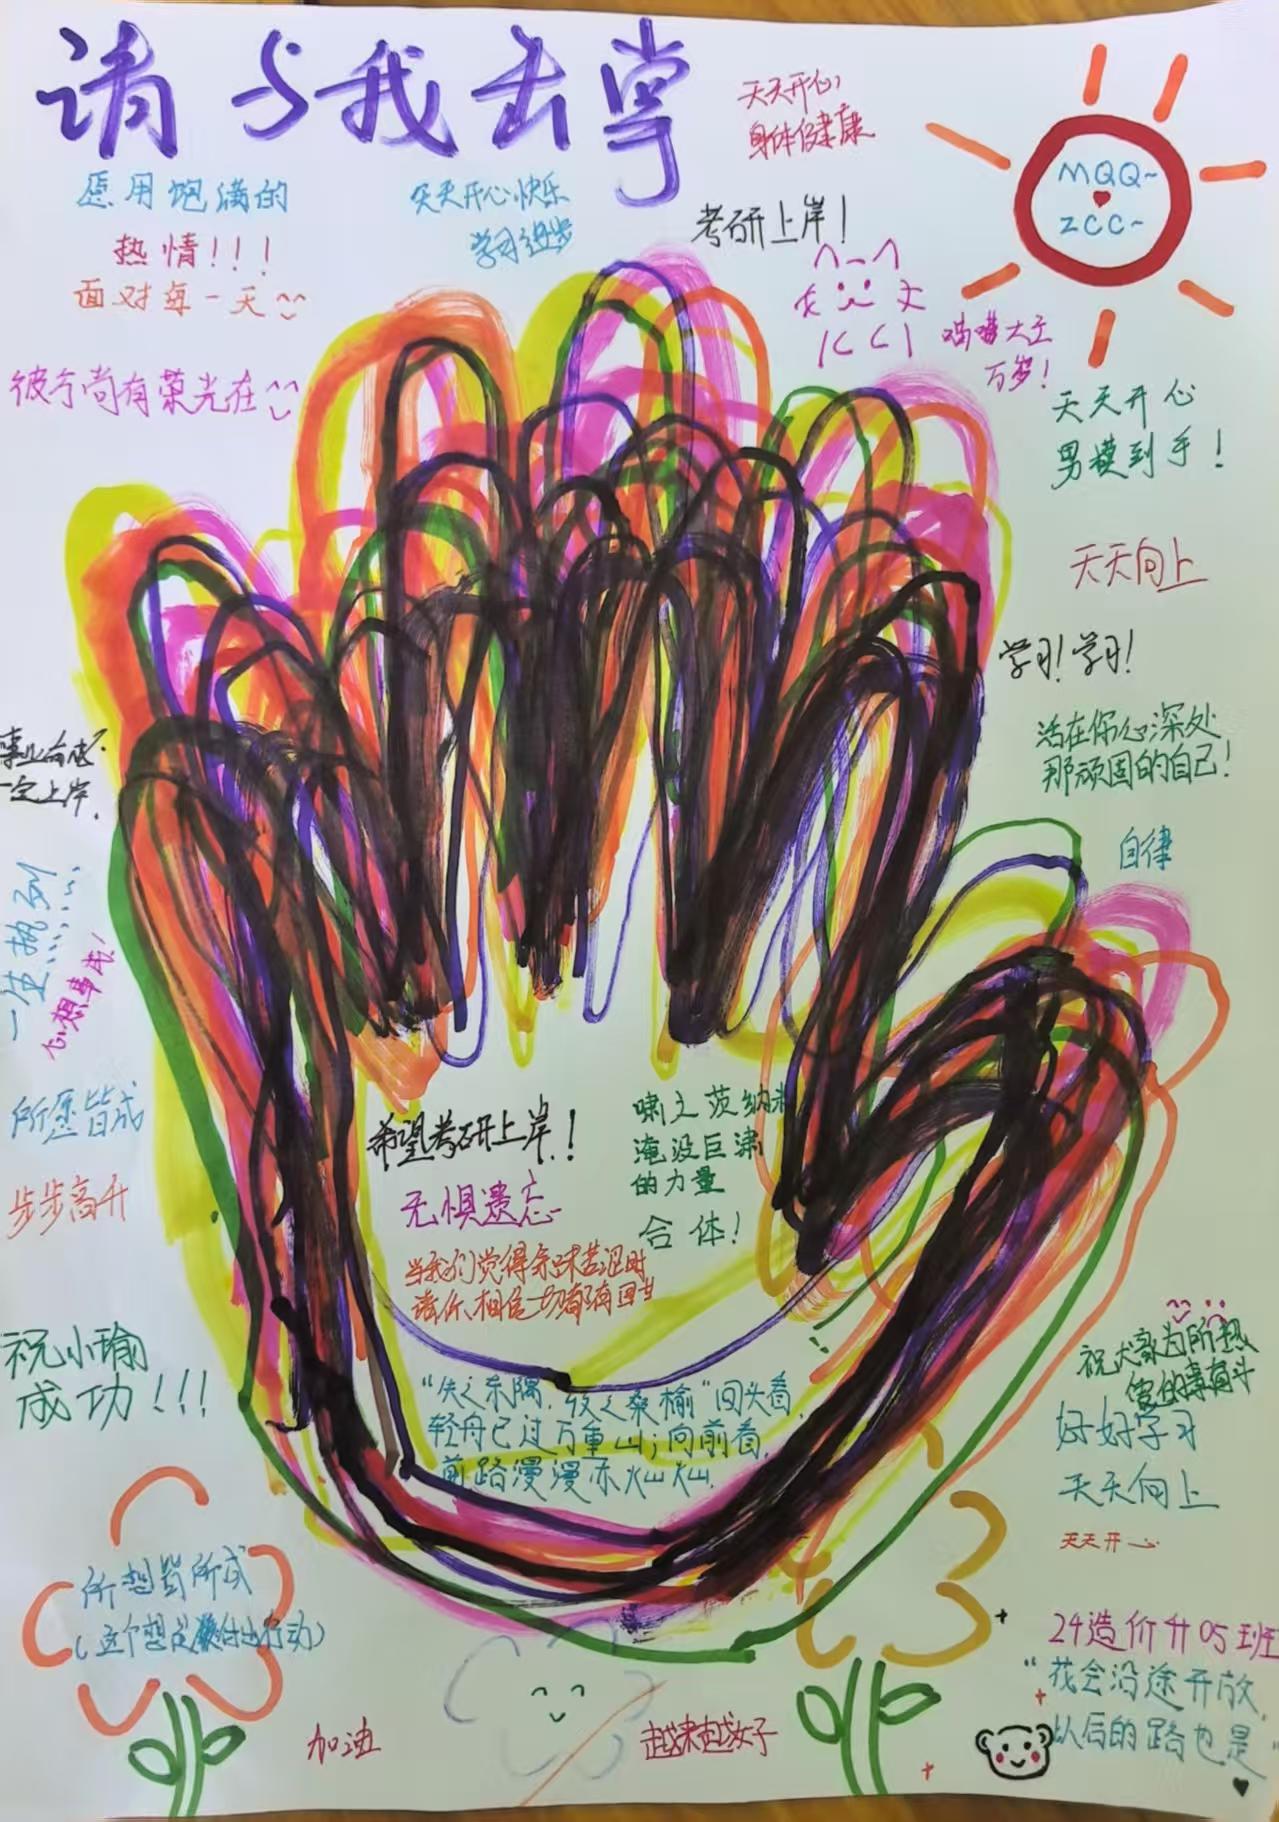 请与我击掌
天天开心
身体健康
MQQ~
ZCC~
愿用饱满的
热情!!!
面对每一天
天天开心快乐
学习进步
考研上岸!
喵喵大王
万岁!
彼方尚有荣光在
天天开心
男模到手!
天天向上
学习!学习!
活在你心深处
那顽固的自己!
事业有成
一定上岸.
自律
一生执列
心想事成!
所愿皆成
步步高升
希望考研上岸.!
无惧遗忘
当我们觉得
请你相信一切都有回甘
啸之茨纳米
淹没巨潇
的力量
合体!
祝小瑜
成功!!!
"失之东隅,收之桑榆"回头看,
轻舟已过万重山;向前看,
前路漫漫亦灿灿.
祝大家为所热
好好学习
天天向上
天天开心
所想皆所成
(这个想是付出行动)
24造价升05班
"花会沿途开放,
以后的路也是"
加油
越来越好